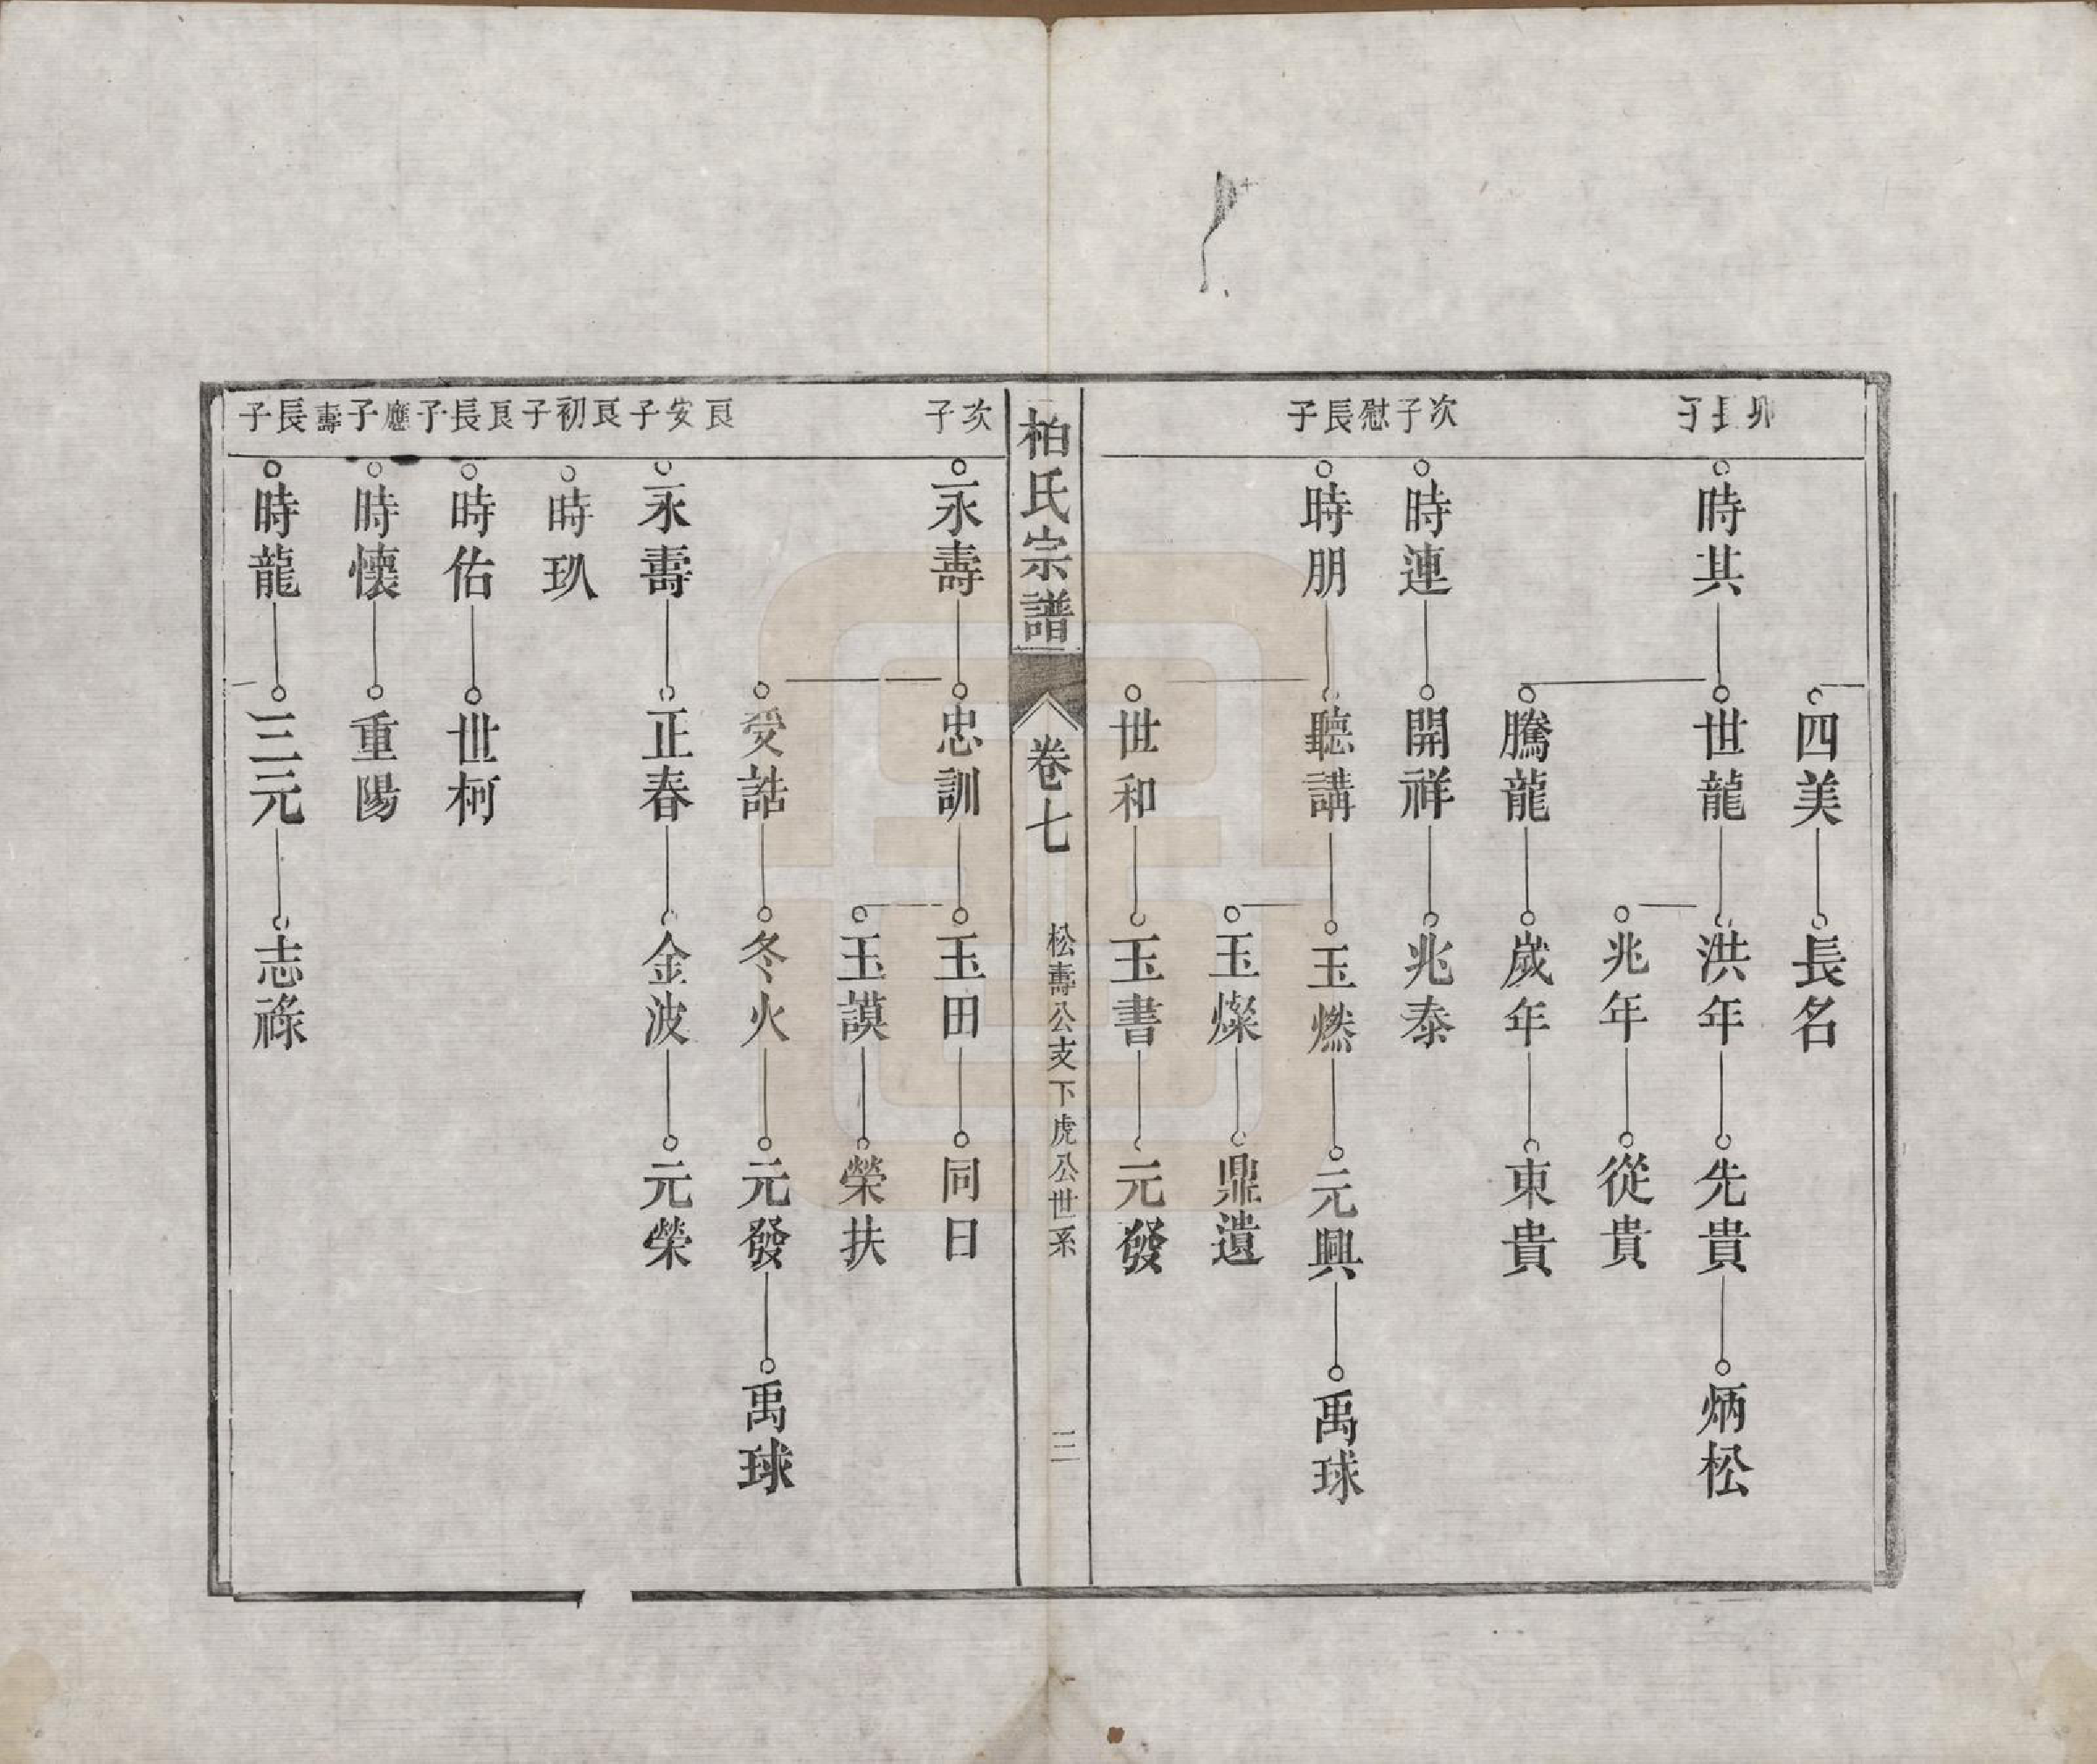 四美 長名
卯長子
時其 世龍 洪年 先貴 炳松
兆年 從貴
騰龍 歲年 東貴
次子
時連 開祥 兆泰
慰長子
時朋 聽講 玉燃 元興 禹球
玉燦 鼎遺
世和 玉書 元發
柏氏宗譜 卷七 松壽公支下虎公世系 三
次子
永壽 忠訓 玉田 同日
玉謨 榮扶
受誥 冬火 元發 禹球
良安子
永壽 正春 金波 元榮
良初子
時玐
良長子
時佑 世柯
應子
時懷 重陽
壽長子
時龍 三元 志祿